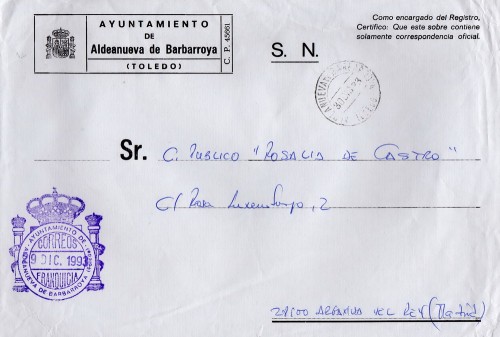 AYUNTAMIENTO
DE
Aldeanueva de Barbarroya
(TOLEDO)
C. P. 45661
Como encargado del Registro,
Certifico: Que este sobre contiene
solamente correspondencia oficial.
S. N.
Sr. C. PUBLICO "ROSALIA DE CASTRO"
C/ Rosa Luxemburgo, 2
AYUNTAMIENTO DE
CORREOS
9 DIC. 1993
FRANQUICIA
ALDEANUEVA DE BARBARROYA
28500 ARGANDA DEL REY (Madrid)